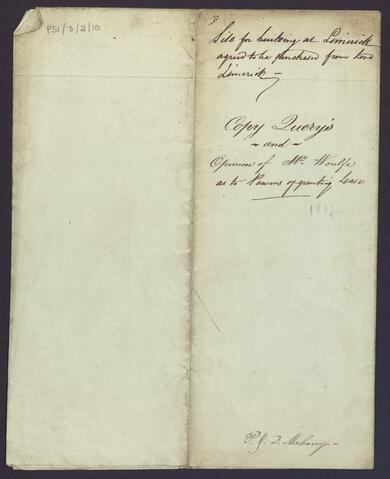 PS1/3/2/10
Site for building at Limerick
agreed to be purchased from Lord
Limerick —
Copy Query's
~ and ~
Opinion of Mr. Woulfe
as to Powers of granting Lease
P. & D. Mahony